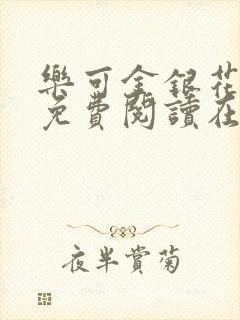 樂可金銀花
免費閱讀在
夜半賞菊